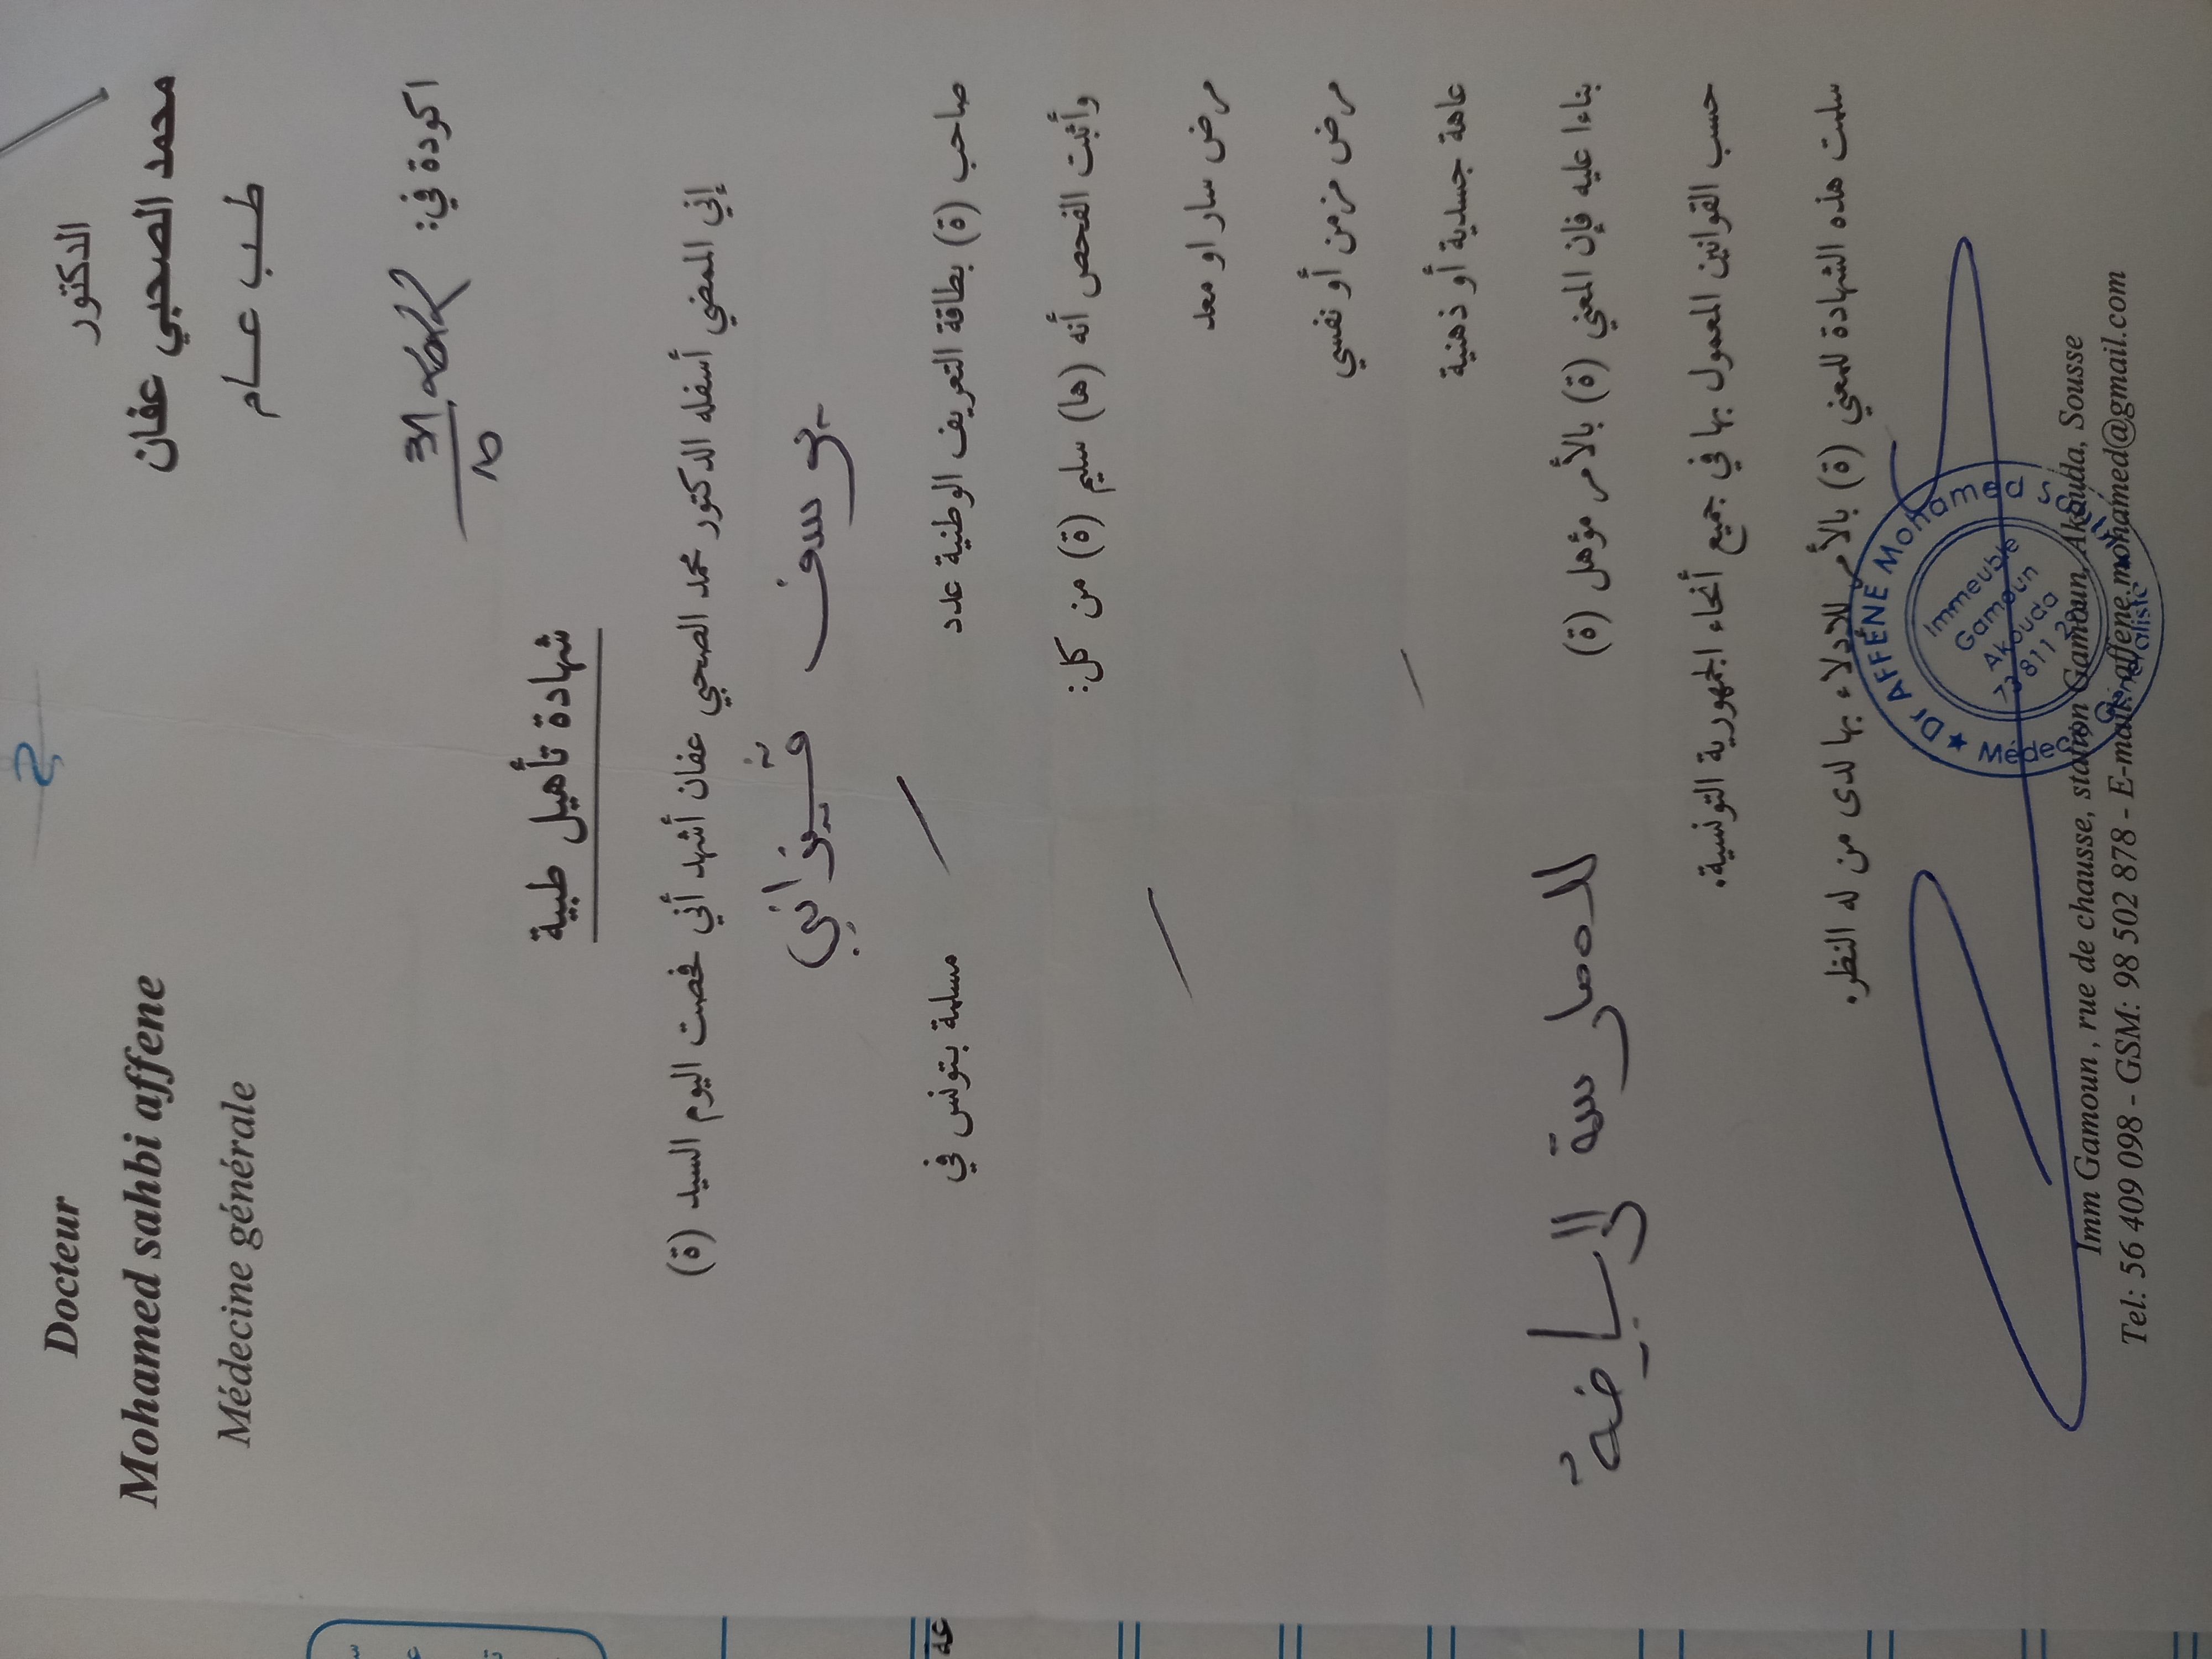 2
الدكتور
محمد الصحبي عفان
طب عام
Docteur
Mohamed sahbi affene
Médecine générale
اكودة في:
31
10
شهادة تأهيل طبية
إني الممضي أسفله الدكتور محمد الصحبي عفان أشهد أني فحصت اليوم السيد (ة)
يوسف قيزاني
صاحب (ة) بطاقة التعريف الوطنية عدد / مسلمة بتونس في
وأثبت الفحص أنه (ها) سليم (ة) من كل:
مرض سار او معد
مرض مزمن أو نفسي
عاهة جسدية أو ذهنية
بناءا عليه فإن المعني (ة) بالأمر مؤهل (ة) لممارسة الرياضة
حسب القوانين المعمول بها في جميع أنحاء الجمهورية التونسية.
سلمت هذه الشهادة للمعني (ة) بالأمر للادلاء بها لدى من له النظر.
Dr AFFENE Mohamed
Immeuble
Gamoun
Akouda
Imm Gamoun , rue de chausse, station Gamoun, Akouda, Sousse
Tel: 56 409 098 - GSM: 98 502 878 - E-mail: affene.mohamed@gmail.com
عة